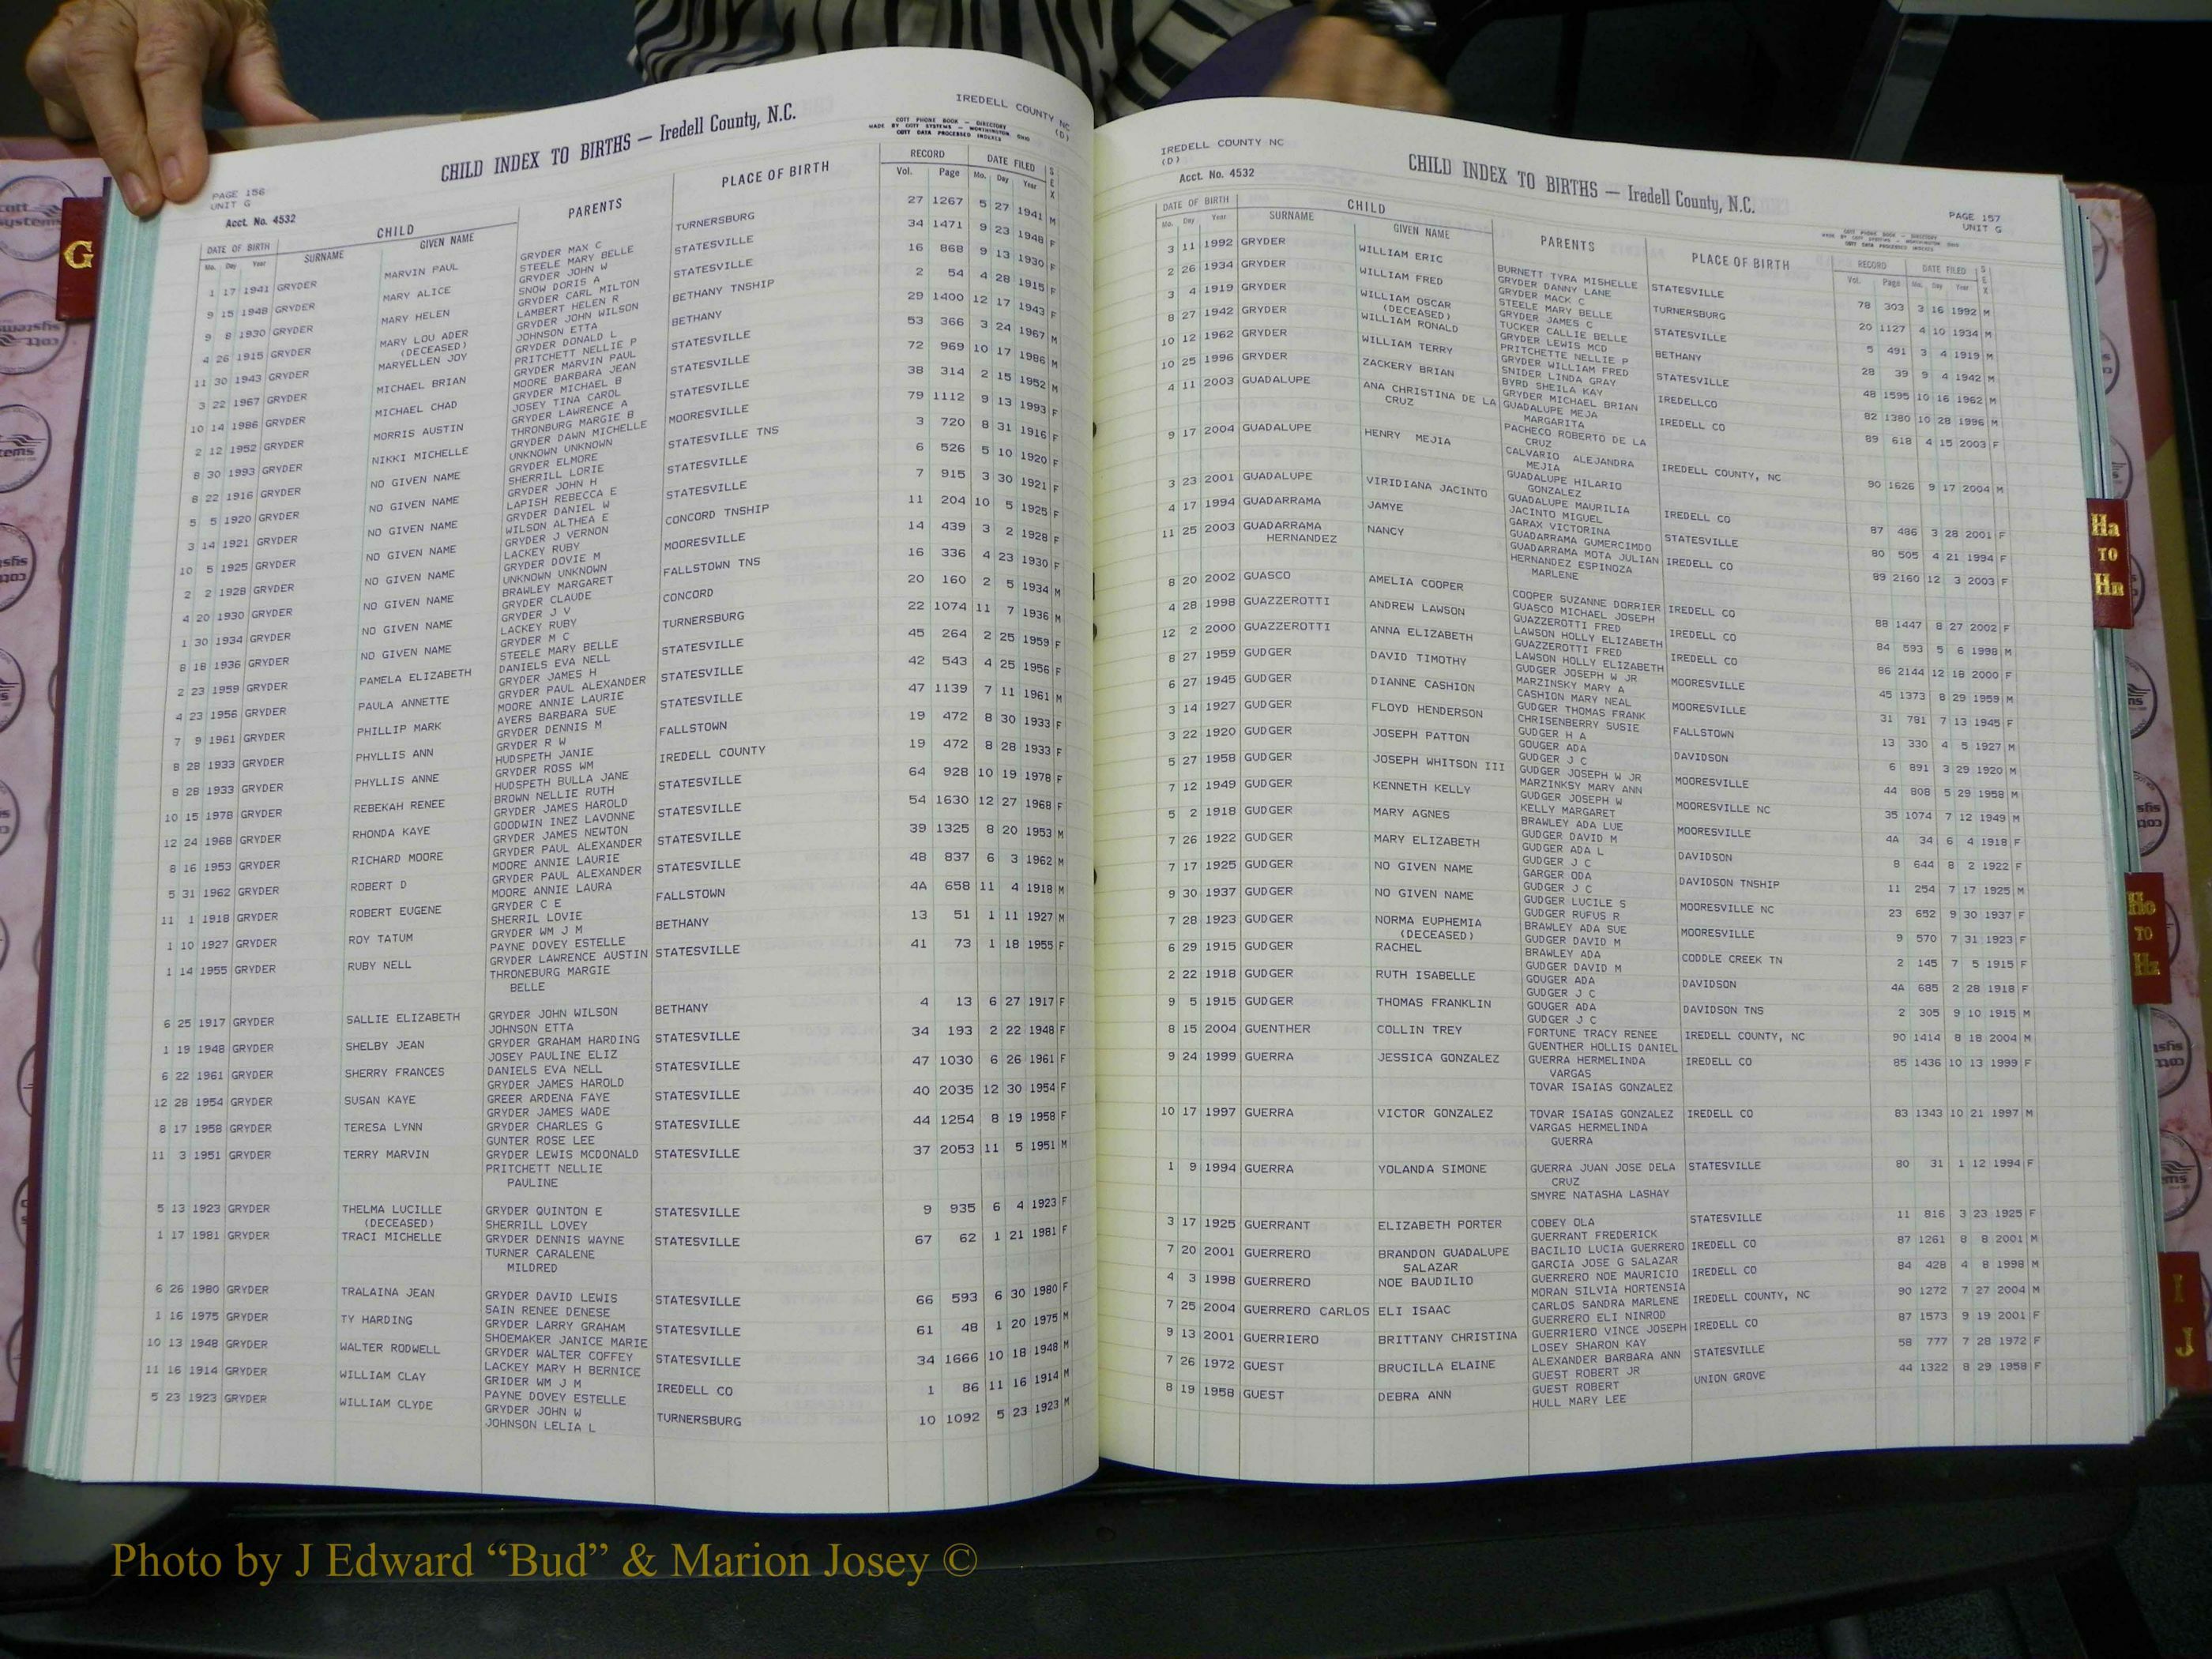 IREDELL COUNTY NC
(D)
CHILD INDEX TO BIRTHS — Iredell County, N.C.
COTT PHONE BOOK — DIRECTORY
MADE BY COTT SYSTEMS — WORTHINGTON, OHIO
COTT DATA PROCESSED INDEXES
PAGE 156
UNIT G
Acct. No. 4532
DATE OF BIRTH CHILD PARENTS PLACE OF BIRTH RECORD DATE FILED SEX
Mo. Day Year SURNAME GIVEN NAME Vol. Page Mo. Day Year
1 17 1941 GRYDER MARVIN PAUL GRYDER MAX C TURNERSBURG 27 1267 5 27 1941 M
STEELE MARY BELLE
9 15 1948 GRYDER MARY ALICE GRYDER JOHN W STATESVILLE 34 1471 9 23 1948 F
SNOW DORIS A
9 8 1930 GRYDER MARY HELEN GRYDER CARL MILTON STATESVILLE 16 868 9 13 1930 F
LAMBERT HELEN R
4 26 1915 GRYDER MARY LOU ADER GRYDER JOHN WILSON BETHANY TNSHIP 2 54 4 28 1915 F
(DECEASED) JOHNSON ETTA
11 30 1943 GRYDER MARYELLEN JOY GRYDER DONALD L BETHANY 29 1400 12 17 1943 F
PRITCHETT NELLIE P
3 22 1967 GRYDER MICHAEL BRIAN GRYDER MARVIN PAUL STATESVILLE 53 366 3 24 1967 M
MOORE BARBARA JEAN
10 14 1986 GRYDER MICHAEL CHAD GRYDER MICHAEL B STATESVILLE 72 969 10 17 1986 M
JOSEY TINA CAROL
2 12 1952 GRYDER MORRIS AUSTIN GRYDER LAWRENCE A STATESVILLE 38 314 2 15 1952 M
THRONBURG MARGIE B
8 30 1993 GRYDER NIKKI MICHELLE GRYDER DAWN MICHELLE MOORESVILLE 79 1112 9 13 1993 F
UNKNOWN UNKNOWN
8 22 1916 GRYDER NO GIVEN NAME GRYDER ELMORE STATESVILLE TNS 3 720 8 31 1916 F
SHERRILL LORIE
5 5 1920 GRYDER NO GIVEN NAME GRYDER JOHN H STATESVILLE 6 526 5 10 1920 F
LAPISH REBECCA E
3 14 1921 GRYDER NO GIVEN NAME GRYDER DANIEL W STATESVILLE 7 915 3 30 1921 F
WILSON ALTHEA E
10 5 1925 GRYDER NO GIVEN NAME GRYDER J VERNON CONCORD TNSHIP 11 204 10 5 1925 F
LACKEY RUBY
2 2 1928 GRYDER NO GIVEN NAME GRYDER DOVIE M MOORESVILLE 14 439 3 2 1928 F
UNKNOWN UNKNOWN
4 20 1930 GRYDER NO GIVEN NAME BRAWLEY MARGARET FALLSTOWN TNS 16 336 4 23 1930 F
GRYDER CLAUDE
1 30 1934 GRYDER NO GIVEN NAME GRYDER J V CONCORD 20 160 2 5 1934 M
LACKEY RUBY
8 18 1936 GRYDER NO GIVEN NAME GRYDER M C TURNERSBURG 22 1074 11 7 1936 M
STEELE MARY BELLE
2 23 1959 GRYDER PAMELA ELIZABETH DANIELS EVA NELL STATESVILLE 45 264 2 25 1959 F
GRYDER JAMES H
4 23 1956 GRYDER PAULA ANNETTE GRYDER PAUL ALEXANDER STATESVILLE 42 543 4 25 1956 F
MOORE ANNIE LAURIE
7 9 1961 GRYDER PHILLIP MARK AYERS BARBARA SUE STATESVILLE 47 1139 7 11 1961 M
GRYDER DENNIS M
8 28 1933 GRYDER PHYLLIS ANN GRYDER R W FALLSTOWN 19 472 8 30 1933 F
HUDSPETH JANIE
8 28 1933 GRYDER PHYLLIS ANNE GRYDER ROSS WM IREDELL COUNTY 19 472 8 28 1933 F
HUDSPETH BULLA JANE
10 15 1978 GRYDER REBEKAH RENEE BROWN NELLIE RUTH STATESVILLE 64 928 10 19 1978 F
GRYDER JAMES HAROLD
12 24 1968 GRYDER RHONDA KAYE GOODWIN INEZ LAVONNE STATESVILLE 54 1630 12 27 1968 F
GRYDER JAMES NEWTON
8 16 1953 GRYDER RICHARD MOORE GRYDER PAUL ALEXANDER STATESVILLE 39 1325 8 20 1953 M
MOORE ANNIE LAURIE
5 31 1962 GRYDER ROBERT D GRYDER PAUL ALEXANDER STATESVILLE 48 837 6 3 1962 M
MOORE ANNIE LAURA
11 1 1918 GRYDER ROBERT EUGENE GRYDER C E FALLSTOWN 4A 658 11 4 1918 M
SHERRIL LOVIE
1 10 1927 GRYDER ROY TATUM GRYDER WM J M BETHANY 13 51 1 11 1927 M
PAYNE DOVEY ESTELLE
1 14 1955 GRYDER RUBY NELL GRYDER LAWRENCE AUSTIN STATESVILLE 41 73 1 18 1955 F
THRONEBURG MARGIE
BELLE
6 25 1917 GRYDER SALLIE ELIZABETH GRYDER JOHN WILSON BETHANY 4 13 6 27 1917 F
JOHNSON ETTA
1 19 1948 GRYDER SHELBY JEAN GRYDER GRAHAM HARDING STATESVILLE 34 193 2 22 1948 F
JOSEY PAULINE ELIZ
6 22 1961 GRYDER SHERRY FRANCES DANIELS EVA NELL STATESVILLE 47 1030 6 26 1961 F
GRYDER JAMES HAROLD
12 28 1954 GRYDER SUSAN KAYE GREER ARDENA FAYE STATESVILLE 40 2035 12 30 1954 F
GRYDER JAMES WADE
8 17 1958 GRYDER TERESA LYNN GRYDER CHARLES G STATESVILLE 44 1254 8 19 1958 F
GUNTER ROSE LEE
11 3 1951 GRYDER TERRY MARVIN GRYDER LEWIS MCDONALD STATESVILLE 37 2053 11 5 1951 M
PRITCHETT NELLIE
PAULINE
5 13 1923 GRYDER THELMA LUCILLE GRYDER QUINTON E STATESVILLE 9 935 6 4 1923 F
(DECEASED) SHERRILL LOVEY
1 17 1981 GRYDER TRACI MICHELLE GRYDER DENNIS WAYNE STATESVILLE 67 62 1 21 1981 F
TURNER CARALENE
MILDRED
6 26 1980 GRYDER TRALAINA JEAN GRYDER DAVID LEWIS STATESVILLE 66 593 6 30 1980 F
SAIN RENEE DENESE
1 16 1975 GRYDER TY HARDING GRYDER LARRY GRAHAM STATESVILLE 61 48 1 20 1975 M
SHOEMAKER JANICE MARIE
10 13 1948 GRYDER WALTER RODWELL GRYDER WALTER COFFEY STATESVILLE 34 1666 10 18 1948 M
LACKEY MARY H BERNICE
11 16 1914 GRYDER WILLIAM CLAY GRIDER WM J M IREDELL CO 1 86 11 16 1914 M
PAYNE DOVEY ESTELLE
5 23 1923 GRYDER WILLIAM CLYDE GRYDER JOHN W TURNERSBURG 10 1092 5 23 1923 M
JOHNSON LELIA L
IREDELL COUNTY NC
(D)
Acct. No. 4532
CHILD INDEX TO BIRTHS — Iredell County, N.C.
PAGE 157
UNIT G
COTT PHONE BOOK — DIRECTORY
MADE BY COTT SYSTEMS — WORTHINGTON, OHIO
COTT DATA PROCESSED INDEXES
DATE OF BIRTH CHILD PARENTS PLACE OF BIRTH RECORD DATE FILED SEX
Mo. Day Year SURNAME GIVEN NAME Vol. Page Mo. Day Year
3 11 1992 GRYDER WILLIAM ERIC BURNETT TYRA MISHELLE STATESVILLE 78 303 3 16 1992 M
GRYDER DANNY LANE
2 26 1934 GRYDER WILLIAM FRED GRYDER MACK C TURNERSBURG 20 1127 4 10 1934 M
STEELE MARY BELLE
3 4 1919 GRYDER WILLIAM OSCAR GRYDER JAMES C STATESVILLE 5 491 3 4 1919 M
(DECEASED) TUCKER CALLIE BELLE
8 27 1942 GRYDER WILLIAM RONALD GRYDER LEWIS MCD BETHANY 28 39 9 4 1942 M
PRITCHETTE NELLIE P
10 12 1962 GRYDER WILLIAM TERRY GRYDER WILLIAM FRED STATESVILLE 48 1595 10 16 1962 M
SNIDER LINDA GRAY
10 25 1996 GRYDER ZACKERY BRIAN BYRD SHEILA KAY IREDELLCO 82 1380 10 28 1996 M
GRYDER MICHAEL BRIAN
4 11 2003 GUADALUPE ANA CHRISTINA DE LA GUADALUPE MEJA IREDELL CO 89 618 4 15 2003 F
CRUZ MARGARITA
PACHECO ROBERTO DE LA
CRUZ
9 17 2004 GUADALUPE HENRY MEJIA CALVARIO ALEJANDRA IREDELL COUNTY, NC 90 1626 9 17 2004 M
MEJIA
GUADALUPE HILARIO
GONZALEZ
3 23 2001 GUADALUPE VIRIDIANA JACINTO GUADALUPE MAURILIA IREDELL CO 87 486 3 28 2001 F
JACINTO MIGUEL
4 17 1994 GUADARRAMA JAMYE GARAX VICTORINA STATESVILLE 80 505 4 21 1994 F
GUADARRAMA GUMERCIMDO
11 25 2003 GUADARRAMA NANCY GUADARRAMA MOTA JULIAN IREDELL CO 89 2160 12 3 2003 F
HERNANDEZ HERNANDEZ ESPINOZA
MARLENE
8 20 2002 GUASCO AMELIA COOPER COOPER SUZANNE DORRIER IREDELL CO 88 1447 8 27 2002 F
GUASCO MICHAEL JOSEPH
4 28 1998 GUAZZEROTTI ANDREW LAWSON GUAZZEROTTI FRED IREDELL CO 84 593 5 6 1998 M
LAWSON HOLLY ELIZABETH
12 2 2000 GUAZZEROTTI ANNA ELIZABETH GUAZZEROTTI FRED IREDELL CO 86 2144 12 18 2000 F
LAWSON HOLLY ELIZABETH
8 27 1959 GUDGER DAVID TIMOTHY GUDGER JOSEPH W JR MOORESVILLE 45 1373 8 29 1959 M
MARZINSKY MARY A
6 27 1945 GUDGER DIANNE CASHION CASHION MARY NEAL MOORESVILLE 31 781 7 13 1945 F
GUDGER THOMAS FRANK
3 14 1927 GUDGER FLOYD HENDERSON CHRISENBERRY SUSIE FALLSTOWN 13 330 4 5 1927 M
GUDGER H A
3 22 1920 GUDGER JOSEPH PATTON GOUGER ADA DAVIDSON 6 891 3 29 1920 M
GUDGER J C
5 27 1958 GUDGER JOSEPH WHITSON III GUDGER JOSEPH W JR MOORESVILLE 44 808 5 29 1958 M
MARZINKSY MARY ANN
7 12 1949 GUDGER KENNETH KELLY GUDGER JOSEPH W MOORESVILLE NC 35 1074 7 12 1949 M
KELLY MARGARET
5 2 1918 GUDGER MARY AGNES BRAWLEY ADA LUE MOORESVILLE 4A 34 6 4 1918 F
GUDGER DAVID M
7 26 1922 GUDGER MARY ELIZABETH GUDGER ADA L DAVIDSON 8 644 8 2 1922 F
GUDGER J C
7 17 1925 GUDGER NO GIVEN NAME GARGER ODA DAVIDSON TNSHIP 11 254 7 17 1925 M
GUDGER J C
9 30 1937 GUDGER NO GIVEN NAME GUDGER LUCILE S MOORESVILLE NC 23 652 9 30 1937 F
GUDGER RUFUS R
7 28 1923 GUDGER NORMA EUPHEMIA BRAWLEY ADA SUE MOORESVILLE 9 570 7 31 1923 F
(DECEASED) GUDGER DAVID M
6 29 1915 GUDGER RACHEL BRAWLEY ADA CODDLE CREEK TN 2 145 7 5 1915 F
GUDGER DAVID M
2 22 1918 GUDGER RUTH ISABELLE GOUGER ADA DAVIDSON 4A 685 2 28 1918 F
GUDGER J C
9 5 1915 GUDGER THOMAS FRANKLIN GOUGER ADA DAVIDSON TNS 2 305 9 10 1915 M
GUDGER J C
8 15 2004 GUENTHER COLLIN TREY FORTUNE TRACY RENEE IREDELL COUNTY, NC 90 1414 8 18 2004 M
GUENTHER HOLLIS DANIEL
9 24 1999 GUERRA JESSICA GONZALEZ GUERRA HERMELINDA IREDELL CO 85 1436 10 13 1999 F
VARGAS
TOVAR ISAIAS GONZALEZ
10 17 1997 GUERRA VICTOR GONZALEZ TOVAR ISAIAS GONZALEZ IREDELL CO 83 1343 10 21 1997 M
VARGAS HERMELINDA
GUERRA
1 9 1994 GUERRA YOLANDA SIMONE GUERRA JUAN JOSE DELA STATESVILLE 80 31 1 12 1994 F
CRUZ
SMYRE NATASHA LASHAY
3 17 1925 GUERRANT ELIZABETH PORTER COBEY OLA STATESVILLE 11 816 3 23 1925 F
GUERRANT FREDERICK
7 20 2001 GUERRERO BRANDON GUADALUPE BACILIO LUCIA GUERRERO IREDELL CO 87 1261 8 8 2001 M
SALAZAR GARCIA JOSE G SALAZAR
4 3 1998 GUERRERO NOE BAUDILIO GUERRERO NOE MAURICIO IREDELL CO 84 428 4 8 1998 M
MORAN SILVIA HORTENSIA
7 25 2004 GUERRERO CARLOS ELI ISAAC CARLOS SANDRA MARLENE IREDELL COUNTY, NC 90 1272 7 27 2004 M
GUERRERO ELI NINROD
9 13 2001 GUERRIERO BRITTANY CHRISTINA GUERRIERO VINCE JOSEPH IREDELL CO 87 1573 9 19 2001 F
LOSEY SHARON KAY
7 26 1972 GUEST BRUCILLA ELAINE ALEXANDER BARBARA ANN STATESVILLE 58 777 7 28 1972 F
GUEST ROBERT JR
8 19 1958 GUEST DEBRA ANN GUEST ROBERT UNION GROVE 44 1322 8 29 1958 F
HULL MARY LEE
G
Ha
TO
Hn
Ho
TO
Hz
I
J
Photo by J Edward “Bud” & Marion Josey ©